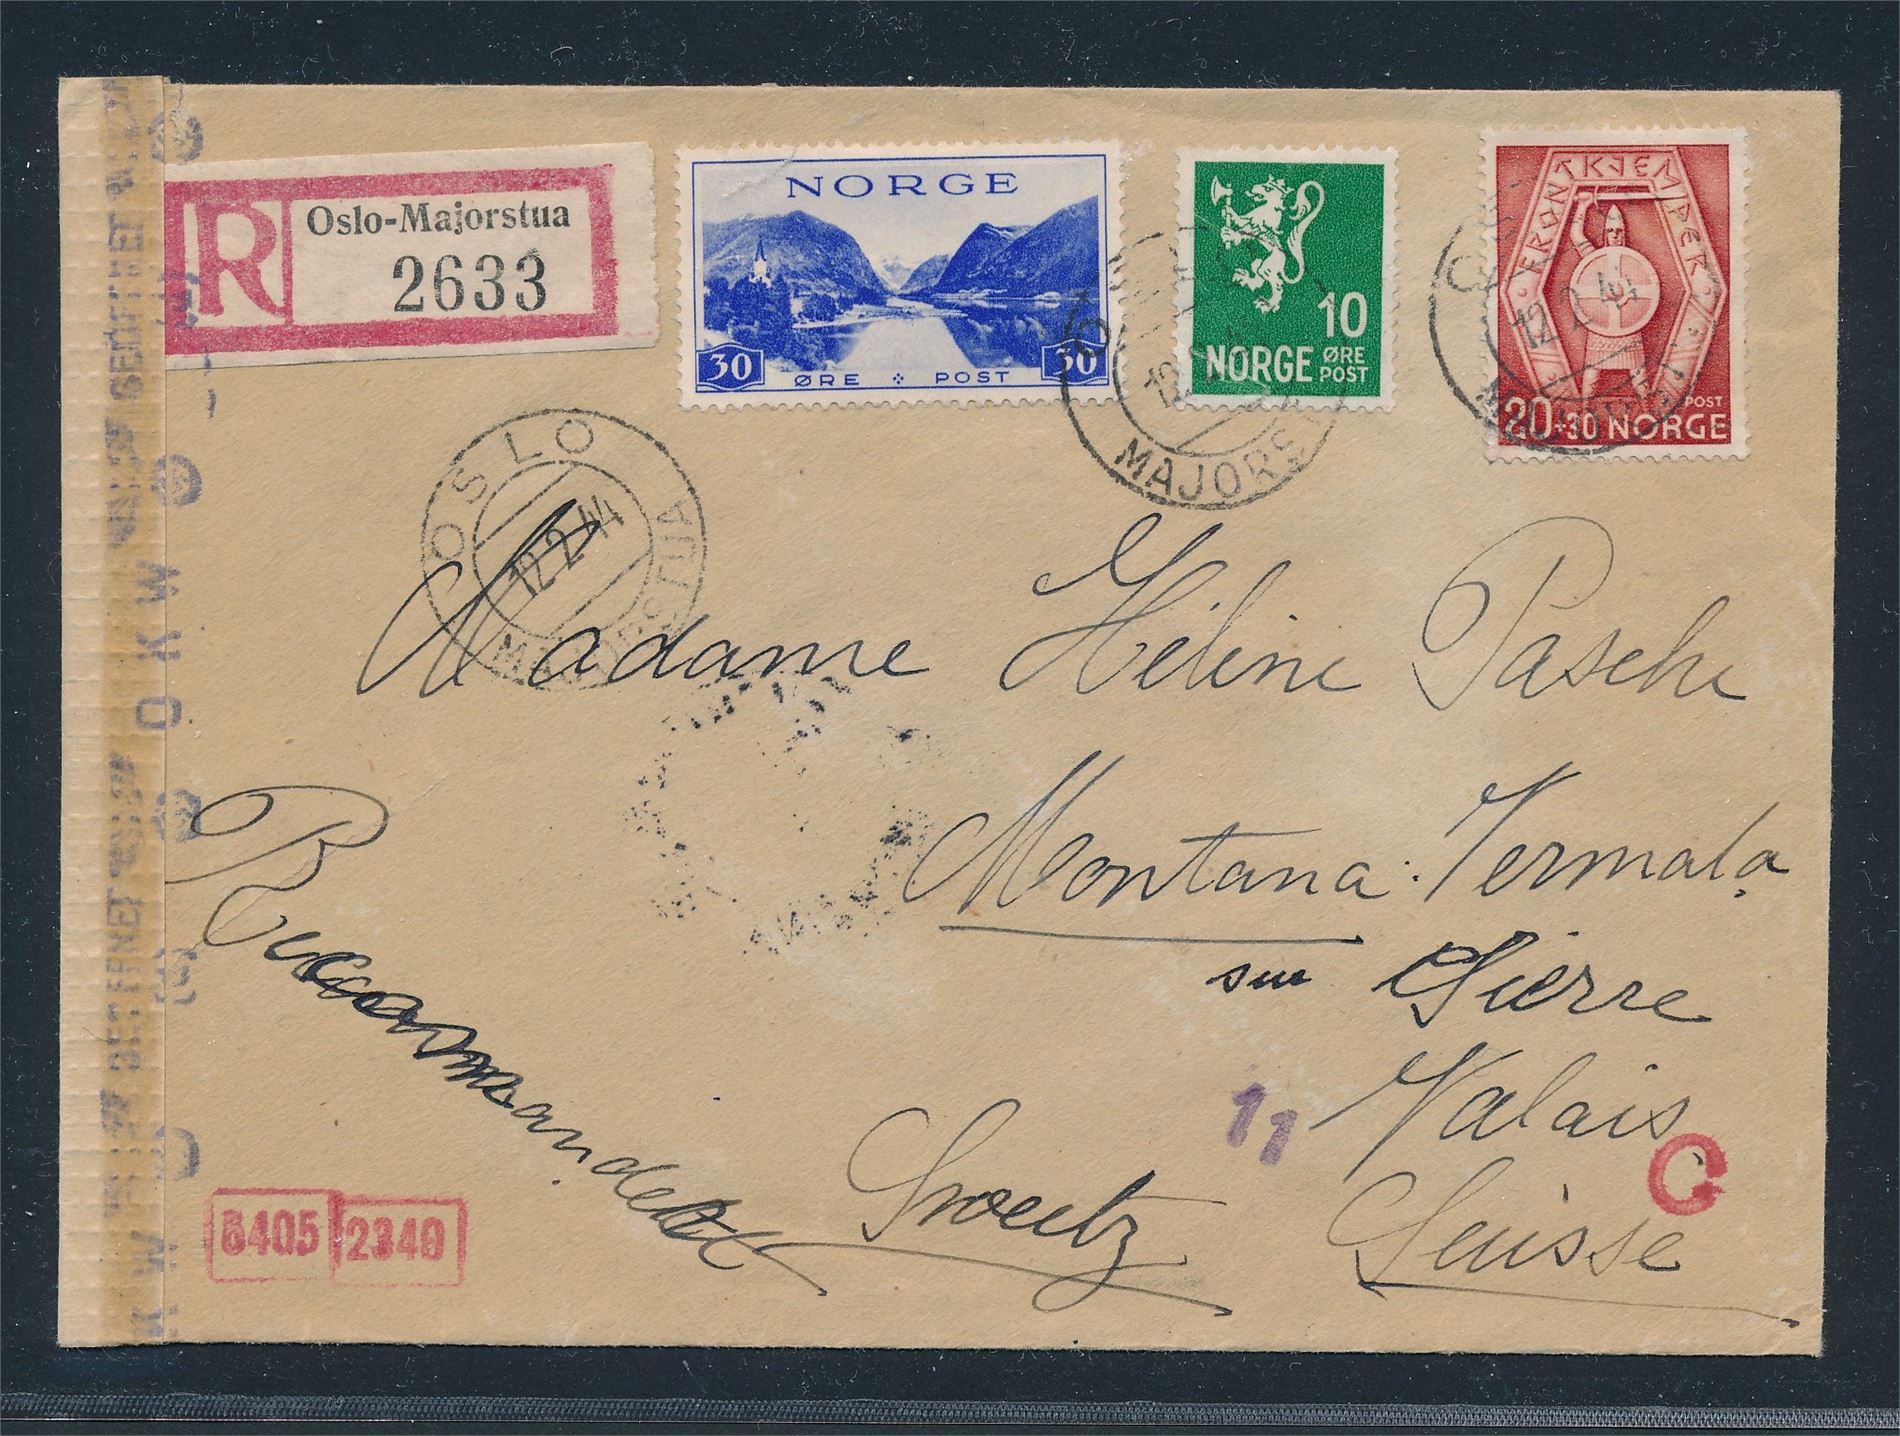 R
Oslo-Majorstua
2633
NORGE
30 ØRE POST 30
10
NORGE ØRE POST
FRONTKJEMPER
POST
20+30 NORGE
OSLO
12 2 44
MAJORSTUA
12
MAJORST
12 2 44
Madame Hélène Pasche
Montana-Vermala
sur Sierre
Valais
Suisse
Sveitz
Recommandert
OKW
GEÖFFNET
11
C
6405 2340